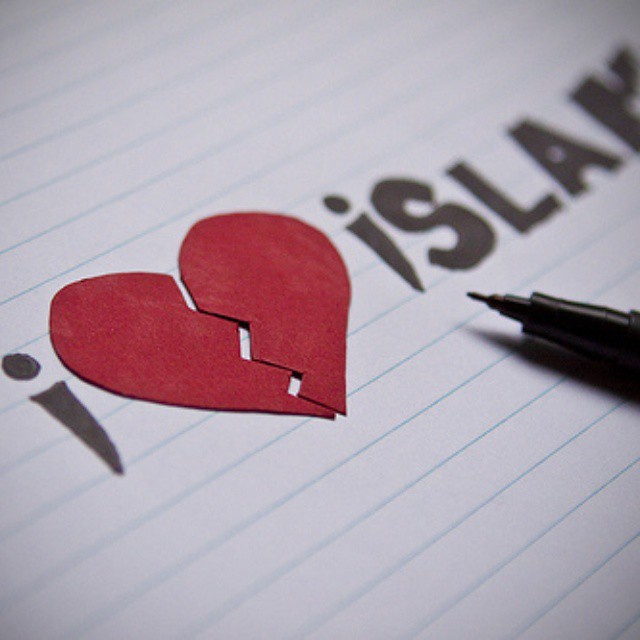 i iSLAM